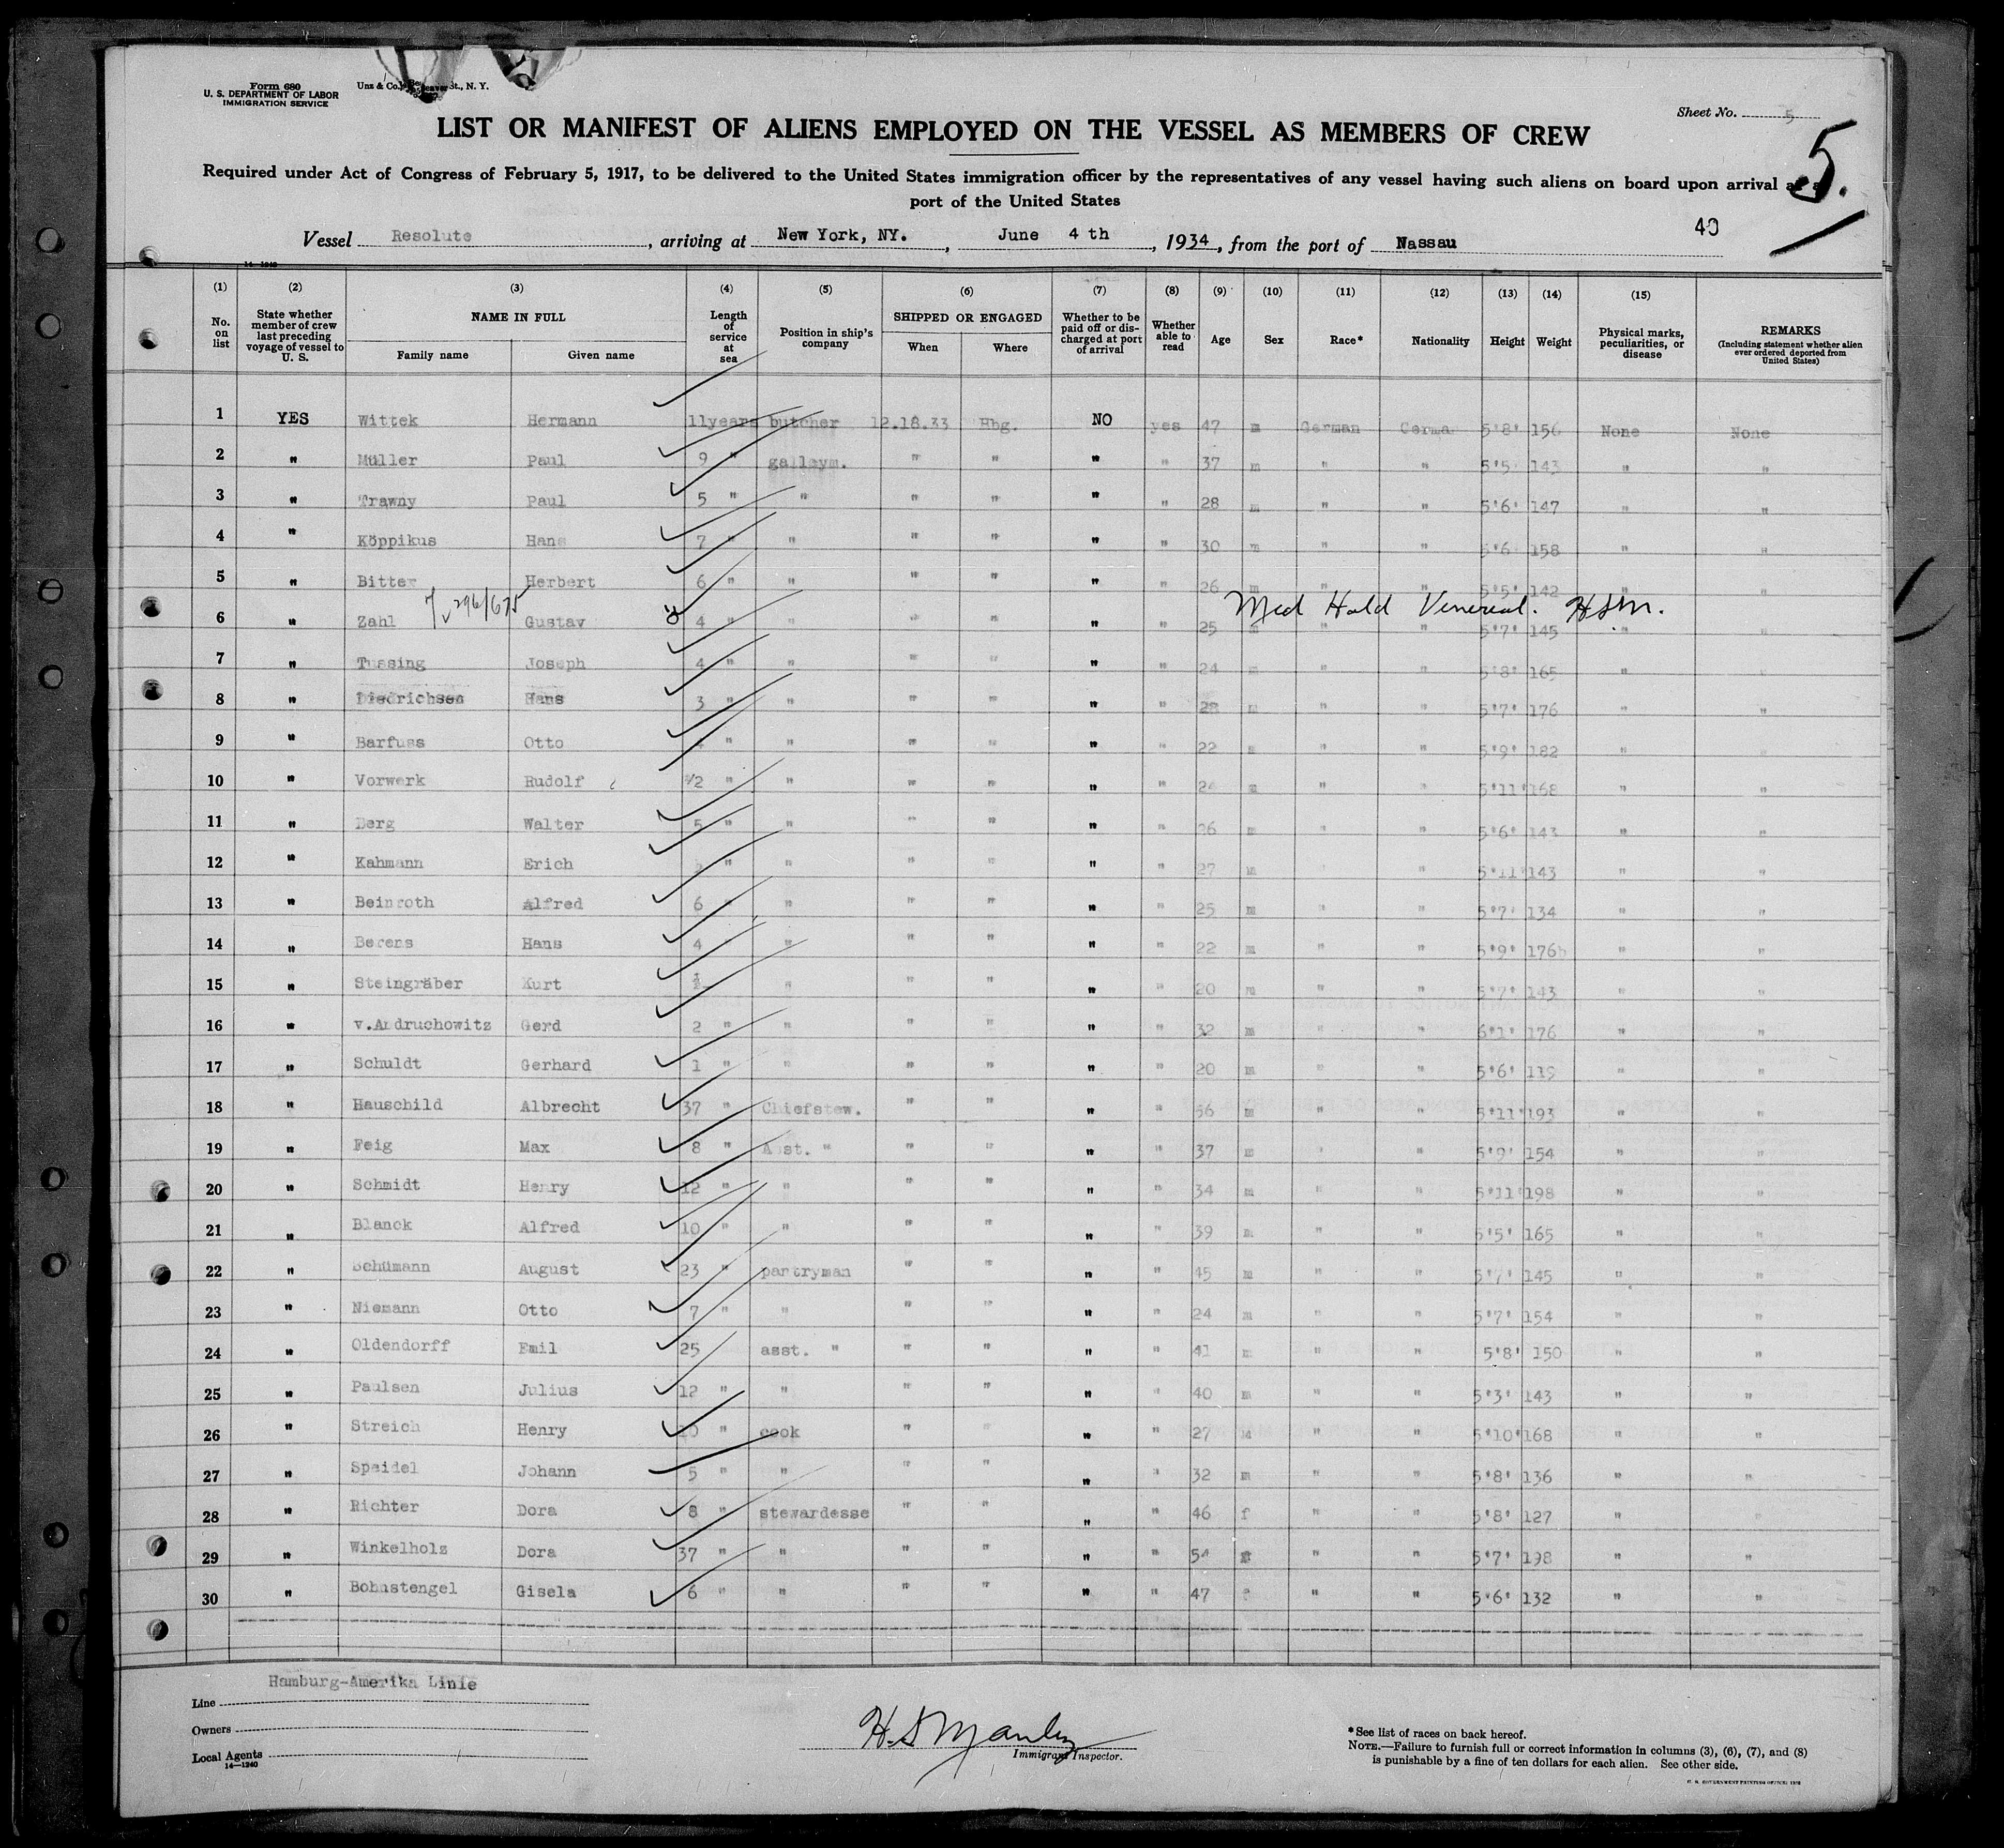 Form 680
U. S. DEPARTMENT OF LABOR
IMMIGRATION SERVICE
Unz & Co. St., N. Y.
Sheet No. 5
LIST OR MANIFEST OF ALIENS EMPLOYED ON THE VESSEL AS MEMBERS OF CREW
5.
Required under Act of Congress of February 5, 1917, to be delivered to the United States immigration officer by the representatives of any vessel having such aliens on board upon arrival at a
port of the United States
40
Vessel Resolute, arriving at New York, NY., June 4 th, 1934, from the port of Nassau
(1) No. on list (2) State whether member of crew last preceding voyage of vessel to U. S. (3) NAME IN FULL Family name Given name (4) Length of service at sea (5) Position in ship's company (6) SHIPPED OR ENGAGED When Where (7) Whether to be paid off or discharged at port of arrival (8) Whether able to read (9) Age (10) Sex (11) Race* (12) Nationality (13) Height (14) Weight (15) Physical marks, peculiarities, or disease REMARKS (Including statement whether alien ever ordered deported from United States)
1 YES Wittek Hermann 11years butcher 12.18.33 Hbg. NO yes 47 m German German 5'8' 156 None None
2 " Müller Paul 9 " galleym. " " " " 37 m " " 5'5' 143 " "
3 " Trawny Paul 5 " " " " " " 28 m " " 5'6' 147 " "
4 " Köppikus Hans 7 " " " " " " 30 m " " 5'6' 158 " "
5 " Bitter Herbert 6 " " " " " " 26 m " " 5'5' 142 " "
6 " Zahl 296/675 Gustav 4 " " " " " 25 m Med Hold Venereal. HSM. " " 5'7' 145 " "
7 " Tussing Joseph 4 " " " " " " 24 m " " 5'8' 165 " "
8 " Diedrichsen Hans 3 " " " " " " 28 m " " 5'7' 176 " "
9 " Barfuss Otto " " " " " " 22 m " " 5'9' 182 " "
10 " Vorwerk Rudolf 1/2 " " " " " " m " " 5'11' 168 " "
11 " Berg Walter 5 " " " " " " 26 m " " 5'6' 143 " "
12 " Kahmann Erich " " " " " " 27 m " " 5'11' 143 " "
13 " Beinroth Alfred 6 " " " " " " 25 m " " 5'7' 134 " "
14 " Berens Hans 4 " " " " " 22 m " " 5'9' 176 " "
15 " Steingräber Kurt ½ " " " " " 20 m " " 5'7' 143 " "
16 " v.Andruchowitz Gerd 2 " " " " " " 32 m " " 6'1' 176 " "
17 " Schuldt Gerhard 1 " " " " " " 20 m " " 5'6' 119 " "
18 " Hauschild Albrecht 37 " Chiefstew. " " " " 56 m " " 5'11' 193 " "
19 " Feig Max 8 " Asst. " " " " " 37 m " " 5'9' 154 " "
20 " Schmidt Henry 12 " " " " " " 34 m " " 5'11' 198 " "
21 " Blanck Alfred 10 " " " " " " 39 m " " 5'5' 165 " "
22 " Schümann August 23 " pantryman " " " " 45 m " " 5'7' 145 " "
23 " Niemann Otto 7 " " " " " " 24 m " " 5'7' 154 " "
24 " Oldendorff Emil 25 asst. " " " " " 41 m " " 5'8' 150 " "
25 " Paulsen Julius 12 " " " " " " 40 m " " 5'3' 143 " "
26 " Streich Henry 10 " cook " " " " 27 m " " 5'10' 168 " "
27 " Speidel Johann 5 " " " " " " 32 m " " 5'8' 136 " "
28 " Richter Dora 8 " stewardesse " " " " 46 f " " 5'8' 127 " "
29 " Winkelholz Dora 37 " " " " " " 54 " " 5'7' 198 " "
30 " Bohnstengel Gisela 6 " " " " " " 47 f " " 5'6' 132 " "
Line Hamburg-Amerika Linie
Owners
Local Agents
14—1240
H. S Manley
Immigrant Inspector.
*See list of races on back hereof.
NOTE.—Failure to furnish full or correct information in columns (3), (6), (7), and (8)
is punishable by a fine of ten dollars for each alien. See other side.
U. S. GOVERNMENT PRINTING OFFICE